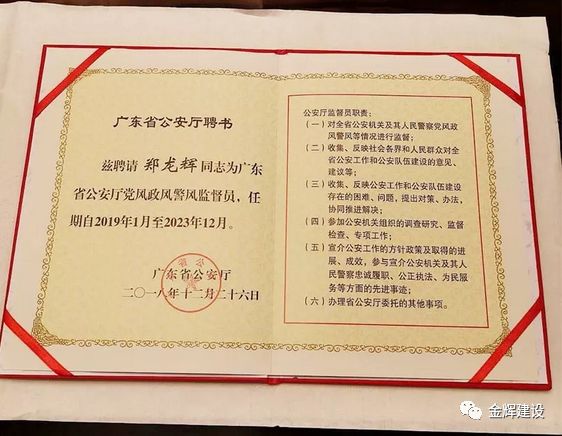 广东省公安厅聘书
兹聘请 郑龙辉 同志为广东
省公安厅党风政风警风监督员，任
期自2019年1月至2023年12月。
广东省公安厅
二〇一八年十二月二十六日
公安厅监督员职责：
（一）对全省公安机关及其人民警察党风政
风警风等情况进行监督；
（二）收集、反映社会各界和人民群众对全
省公安工作和公安队伍建设的意见、
建议等；
（三）收集、反映公安工作和公安队伍建设
存在的困难、问题，提出对策、办法，
协同推进解决；
（四）参加公安机关组织的调查研究、监督
检查、专项工作；
（五）宣介公安工作的方针政策及取得的进
展、成效，参与宣介公安机关及其人
民警察忠诚履职、公正执法、为民服
务等方面的先进事迹；
（六）办理省公安厅委托的其他事项。
金辉建设